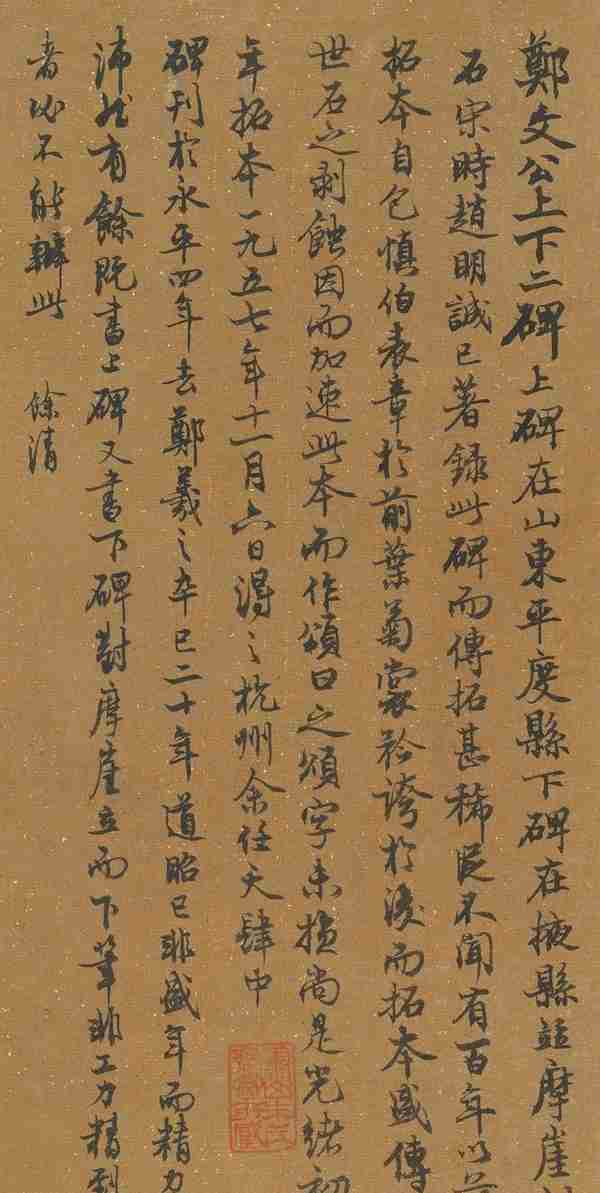 鄭文公上下二碑上碑在山東平度縣下碑在掖縣並摩崖
石宋時趙明誠已著錄此碑而傳拓甚稀從不聞有百年以前
拓本自包慎伯表章於前葉菊裳矜誇於後而拓本盛傳
世石之剥蝕因而加速此本而作頌曰之頌字未損尚是光緒初
年拓本一九五七年十一月六日得之杭州余任天肆中
碑刊於永平四年去鄭羲之卒已二十年道昭已非盛年而精力
沛然有餘既書上碑又書下碑對摩崖立而下筆非工力精到
者必不能辦此 餘清